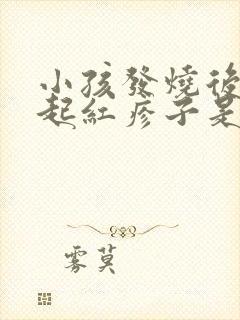 小孩發燒後
起紅疹子是
雾莫